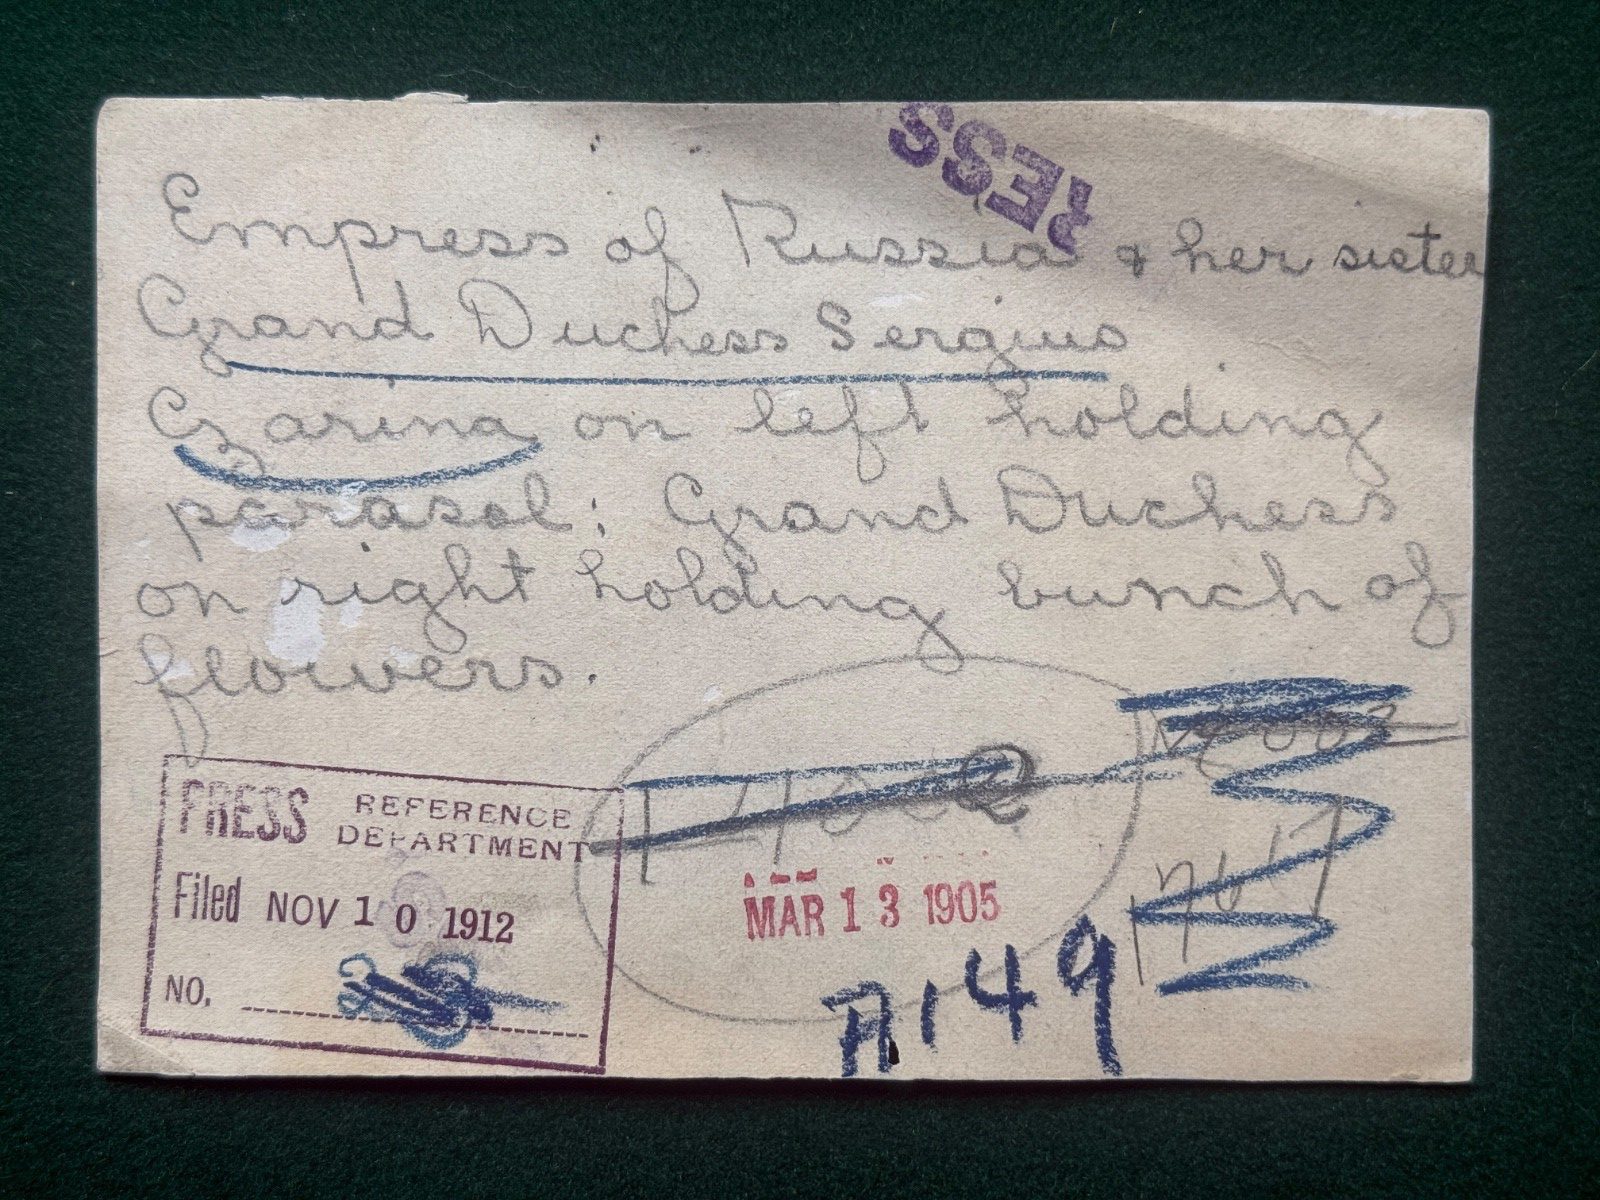 RESS
Empress of Russia & her sister
Grand Duchess Sergius
Czarina on left holding
parasol; Grand Duchess
on right holding bunch of
flowers.
PRESS REFERENCE
DEPARTMENT
Filed NOV 10 1912
NO.
MAR 13 1905
A149